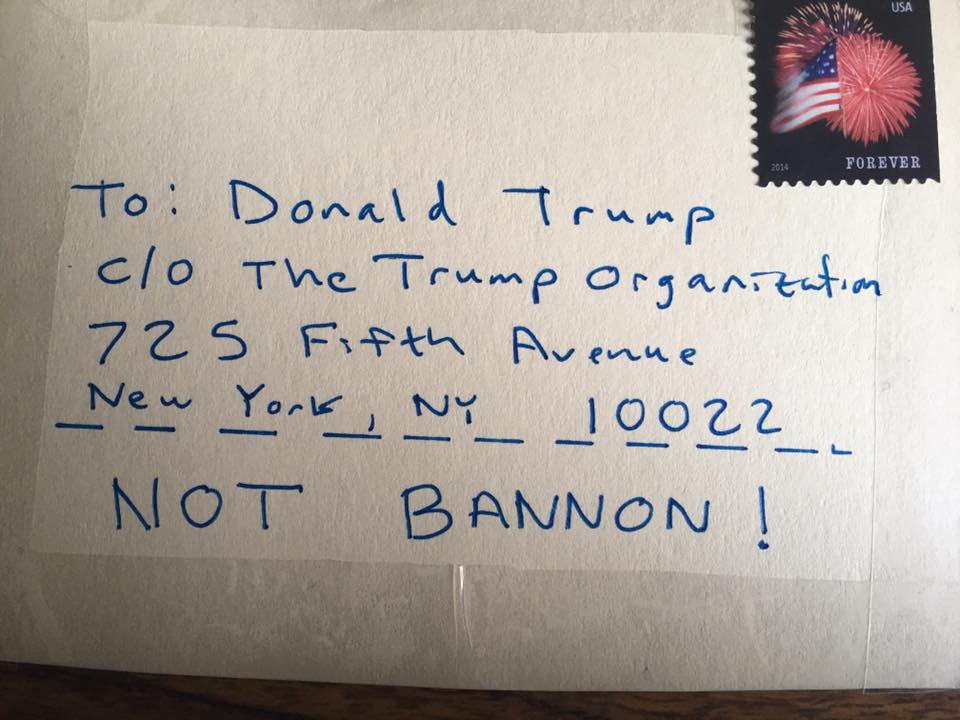 USA
2014 FOREVER
To: Donald Trump
c/o The Trump Organization
725 Fifth Avenue
New York, NY 10022
NOT BANNON!